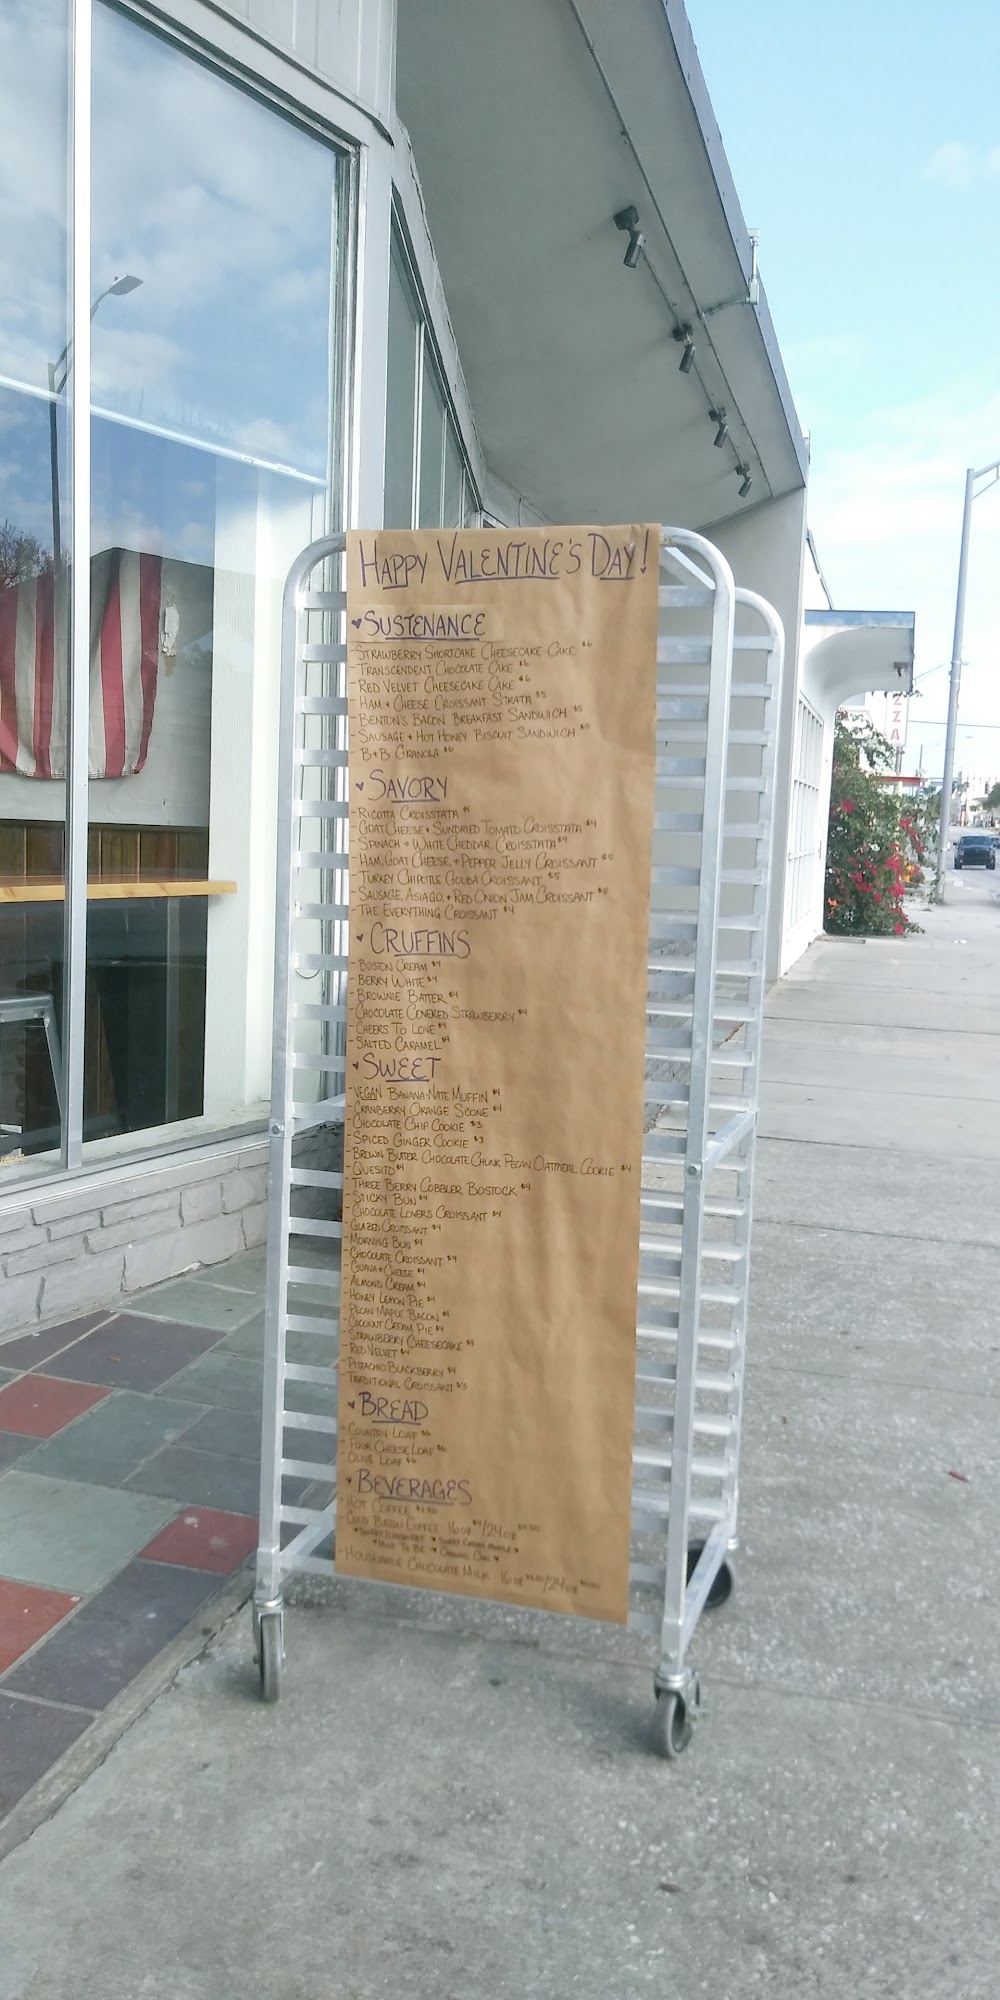 HAPPY VALENTINE'S DAY!
♥SUSTENANCE
-STRAWBERRY SHORTCAKE CHEESECAKE CAKE $6
-TRANSCENDENT CHOCOLATE CAKE $6
-RED VELVET CHEESECAKE CAKE $6
-HAM + CHEESE CROISSANT STRATA $5
-BENTON'S BACON BREAKFAST SANDWICH $5
-SAUSAGE + HOT HONEY BISCUIT SANDWICH $5
-B+B GRANOLA $6
♥SAVORY
-RICOTTA CROISSTATA $4
-GOAT CHEESE + SUNDRIED TOMATO CROISSTATA $4
-SPINACH + WHITE CHEDDAR CROISSTATA $4
-HAM, GOAT CHEESE, + PEPPER JELLY CROISSANT $5
-TURKEY CHIPOTLE GOUDA CROISSANT $5
-SAUSAGE, ASIAGO, + RED ONION JAM CROISSANT $5
-THE EVERYTHING CROISSANT $4
♥CRUFFINS
-BOSTON CREAM $4
-BERRY WHITE $4
-BROWNIE BATTER $4
-CHOCOLATE COVERED STRAWBERRY $4
-CHEERS TO LOVE $4
-SALTED CARAMEL $4
♥SWEET
-VEGAN BANANA-NATE MUFFIN $4
-CRANBERRY ORANGE SCONE $4
-CHOCOLATE CHIP COOKIE $3
-SPICED GINGER COOKIE $3
-BROWN BUTTER CHOCOLATE CHUNK PECAN OATMEAL COOKIE $4
-QUESITO $4
-THREE BERRY COBBLER BOSTOCK $4
-STICKY BUN $4
-CHOCOLATE LOVERS CROISSANT $4
-GLAZED CROISSANT $4
-MORNING BUN $4
-CHOCOLATE CROISSANT $4
-GUAVA + CHEESE $4
-ALMOND CREAM $4
-HONEY LEMON PIE $4
-PECAN MAPLE BACON $4
-COCONUT CREAM PIE $4
-STRAWBERRY CHEESECAKE $4
-RED VELVET $4
-PISTACHIO BLACKBERRY $4
-TRADITIONAL CROISSANT $3
♥BREAD
-COUNTRY LOAF $6
-FOUR CHEESE LOAF $6
-OLIVE LOAF $6
♥BEVERAGES
-HOT COFFEE
-COLD BREW COFFEE 16oz $4/24oz
♥SWEET/UNSWEET ♥SWEET CREAM MAPLE♥
♥MINT TO BE ♥CARAMEL
-HOUSEMADE CHOCOLATE MILK 16oz /24oz
ZZA